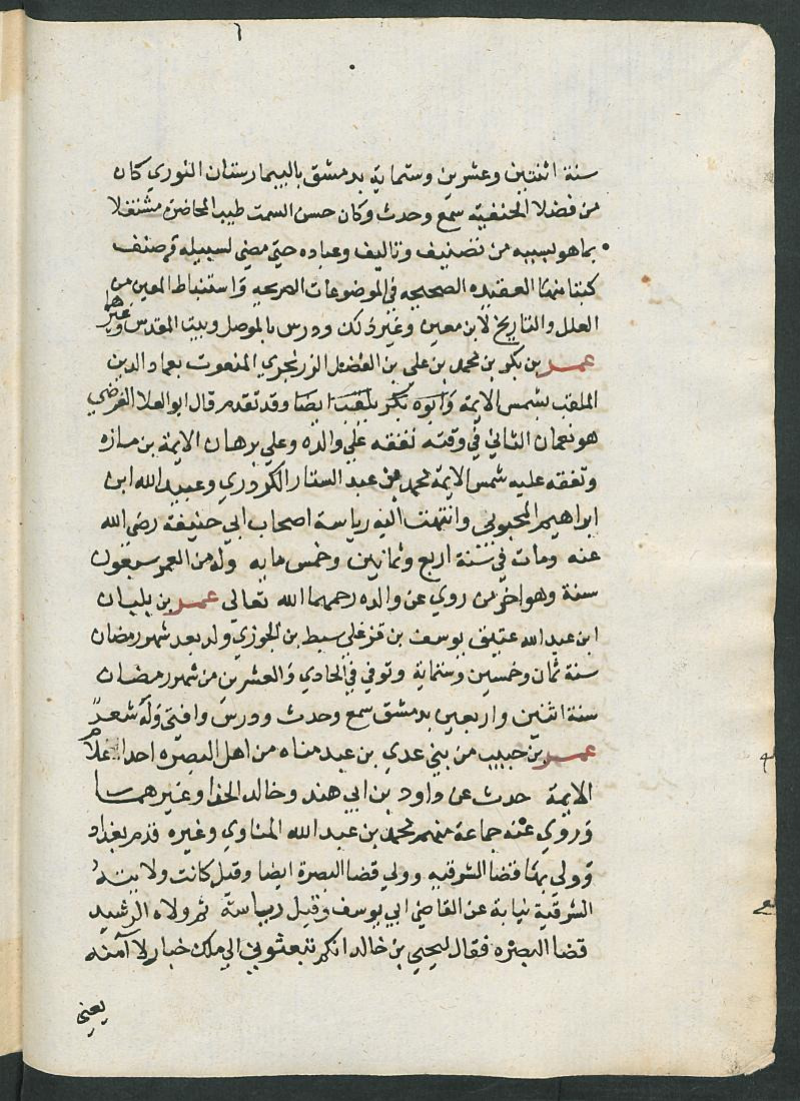 سنة اثنتين وعشرين وستماية بدمشق بالبيمارستان النوري كان
من فضلا الحنفية سمع وحدث وكان حسن السمت طيب المحاضرة مشتغلا
بما هو بسببه من تصنيف وتاليف وعباده حتي مضي لسبيله قد صنف
كتبا منها العقيده الصحيحه في الموضوعات الصريحه واستنباط المعين من
العلل والتاريخ لابن معين وغير ذلك ودرس بالموصل وبيت المقدس وغيرها
عمر بن بكر بن محمد بن علي بن الفضل الزرنجري المنعوت بعماد الدين
الملقب بشمس الايمة وابوه بكر يلقب ايضا وقد تقدم قال ابو العلا الفرضي
هو نعمان الثاني في وقته تفقه علي والده وعلي برهان الايمة بن مازه
وتفقه عليه شمس الايمة محمد بن عبد الستار الكردري وعبيد الله ابن
ابراهيم المحبوبي وانتهت اليه رياسة اصحاب ابي حنيفة رضي الله
عنه ومات في سنة اربع وثمانين وخمس مايه وله من العمر سبعون
سنة وهو اخر من روي عن والده رحمهما الله تعالى عمر بن بلبان
ابن عبد الله عتيق يوسف بن قزغلي سبط بن الجوزي ولد بعد شهر رمضان
سنة ثمان وخمسين وستماية وتوفي في الحادي والعشرين من شهر رمضان
سنة اثنين واربعين بدمشق سمع وحدث ودرس وافتى وله شعر
عمر بن حبيب من بني عدي بن عبد مناه من اهل البصره احد اعلام
الايمة حدث عن داود بن ابي هند وخالد الحذا وغيرهما
وروي عنه جماعة منهم محمد بن عبد الله المناوي وغيره قدم بغداد
وولي بها قضا الشرقيه وولي قضا البصرة ايضا وقيل كانت ولايته
الشرقية نيابة عن القاضي ابي يوسف وقيل رياسة ثم ولاه الرشيد
قضا البصره فقال ليحيي بن خالد انكم تبعثوني الي ملك خبار لا آمنه
يعني